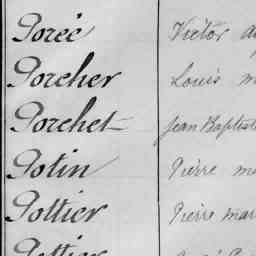 Porée Victor
Porcher Louis
Porchet Jean Baptiste
Potin Pierre
Pottier Pierre mar
Pottier